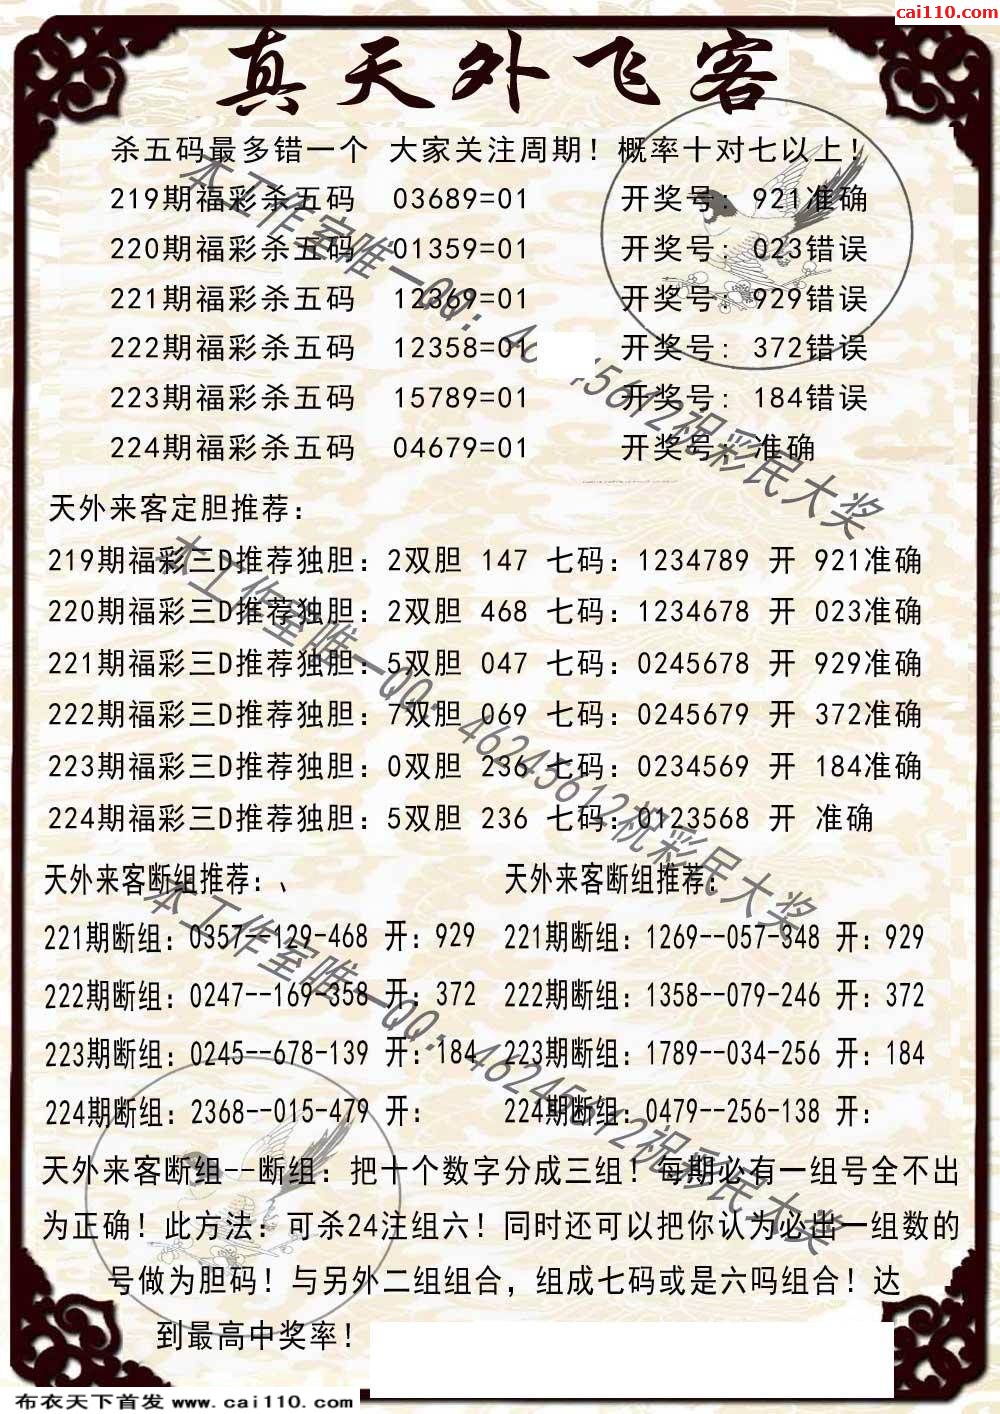 cai110.com
真天外飞客
杀五码最多错一个 大家关注周期！概率十对七以上！
219期福彩杀五码 03689=01 开奖号：921准确
220期福彩杀五码 01359=01 开奖号：023错误
221期福彩杀五码 12369=01 开奖号：929错误
222期福彩杀五码 12358=01 开奖号：372错误
223期福彩杀五码 15789=01 开奖号：184错误
224期福彩杀五码 04679=01 开奖号：准确
天外来客定胆推荐：
219期福彩三D推荐独胆：2双胆 147 七码：1234789 开 921准确
220期福彩三D推荐独胆：2双胆 468 七码：1234678 开 023准确
221期福彩三D推荐独胆：5双胆 047 七码：0245678 开 929准确
222期福彩三D推荐独胆：7双胆 069 七码：0245679 开 372准确
223期福彩三D推荐独胆：0双胆 236 七码：0234569 开 184准确
224期福彩三D推荐独胆：5双胆 236 七码：0123568 开 准确
天外来客断组推荐：、 天外来客断组推荐：
221期断组：0357--129-468 开：929 221期断组：1269--057-348 开：929
222期断组：0247--169-358 开：372 222期断组：1358--079-246 开：372
223期断组：0245--678-139 开：184 223期断组：1789--034-256 开：184
224期断组：2368--015-479 开： 224期断组：0479--256-138 开：
天外来客断组--断组：把十个数字分成三组！每期必有一组号全不出
为正确！此方法：可杀24注组六！同时还可以把你认为必出一组数的
号做为胆码！与另外二组组合，组成七码或是六吗组合！达
到最高中奖率！
本工作室唯一QQ：46245612祝彩民大奖
本工作室唯一QQ：46245612祝彩民大奖
布衣天下首发 www.cai110.com